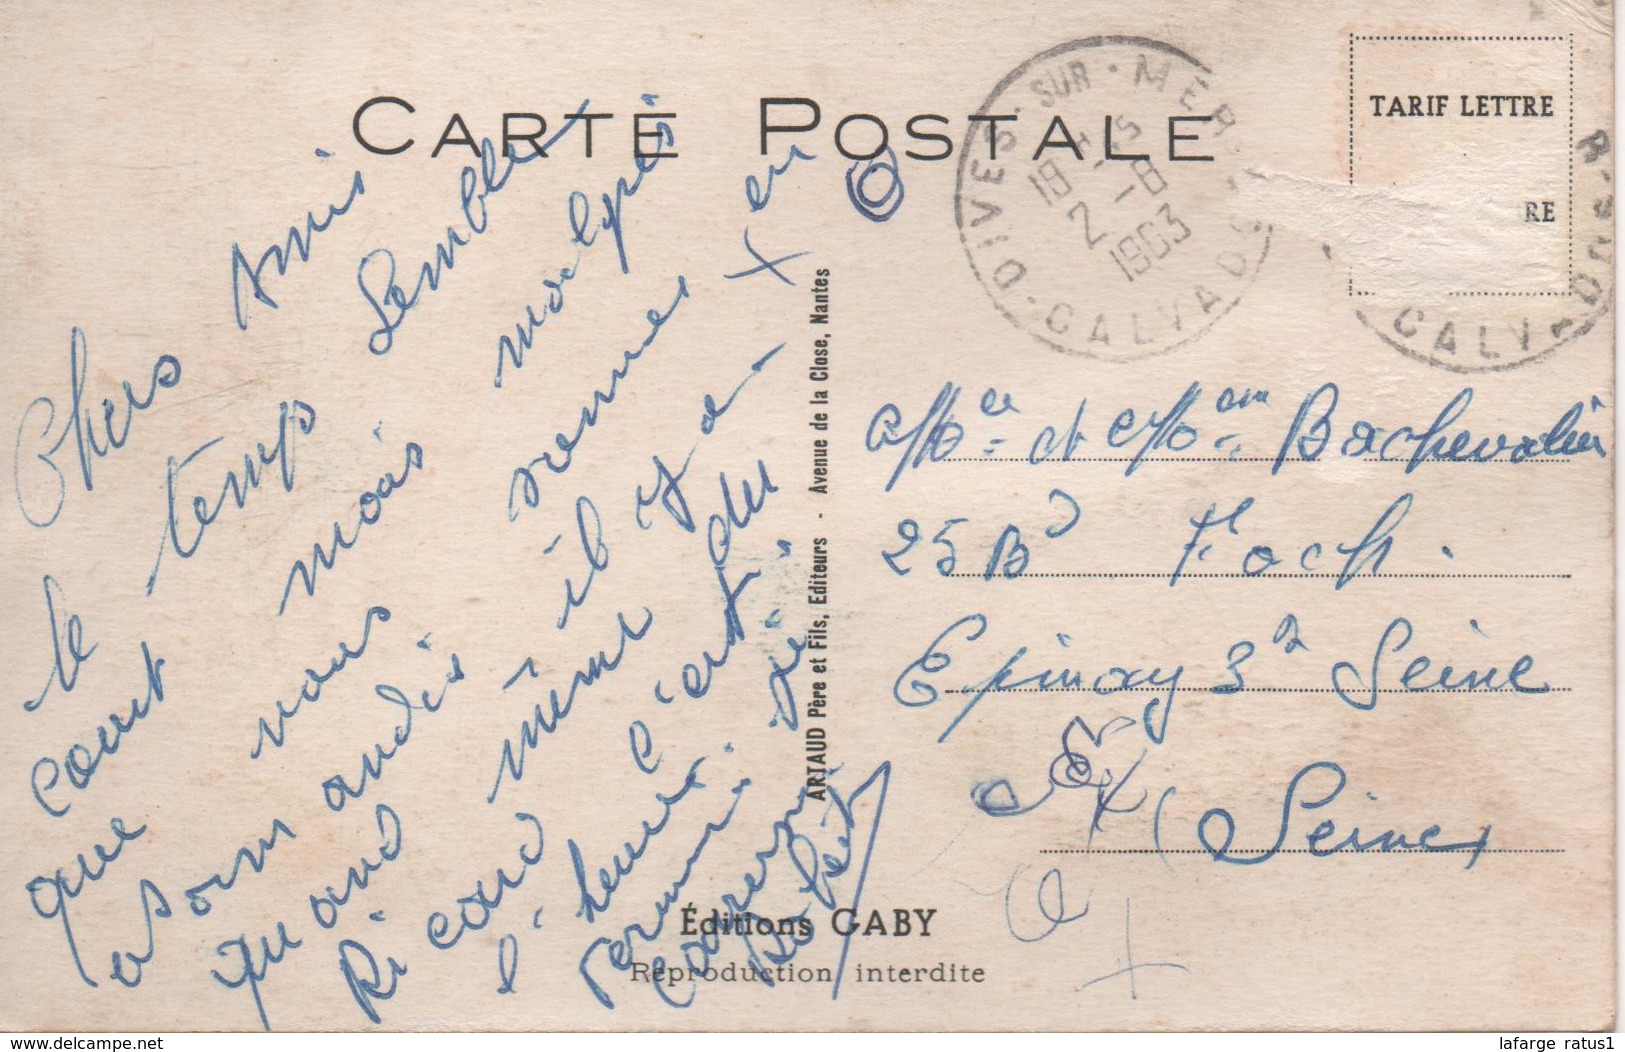 CARTE POSTALE
DIVES-SUR-MER
19 -15
2 -8
1963
CALVADOS
TARIF LETTRE
RE
CALVADOS
Chers Amis
le temps semble
court mois malgrés
que nous sommes
asonandis il y a
quand même du
Ricard
l'heure c'est
Robert
ARTAUD Père et Fils, Editeurs - Avenue de la Close, Nantes
Mr et Mme Bachevalier
25 Bd Foch.
Epinay S Seine
(Seine)
Éditions GABY
Reproduction interdite
delcampe.net
lafarge_ratus1